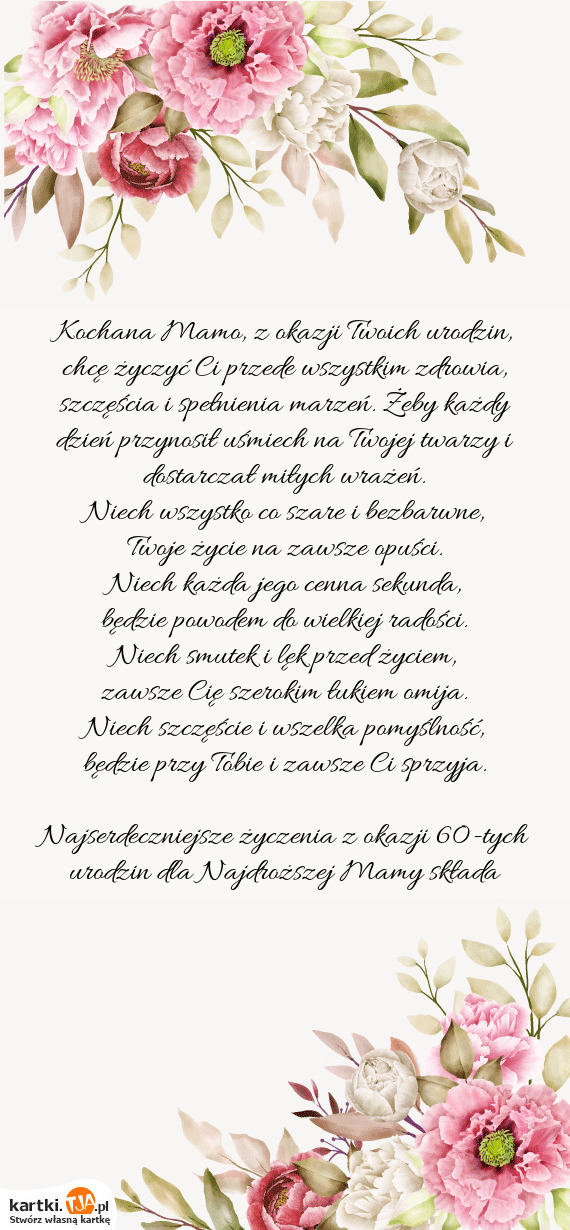 Kochana Mamo, z okazji Twoich urodzin,
chcę życzyć Ci przede wszystkim zdrowia,
szczęścia i spełnienia marzeń. Żeby każdy
dzień przynosił uśmiech na Twojej twarzy i
dostarczał miłych wrażeń.
Niech wszystko co szare i bezbarwne,
Twoje życie na zawsze opuści.
Niech każda jego cenna sekunda,
będzie powodem do wielkiej radości.
Niech smutek i lęk przed życiem,
zawsze Cię szerokim łukiem omija.
Niech szczęście i wszelka pomyślność,
będzie przy Tobie i zawsze Ci sprzyja.
Najserdeczniejsze życzenia z okazji 60-tych
urodzin dla Najdroższej Mamy składa
kartki.TJA.pl
Stwórz własną kartkę